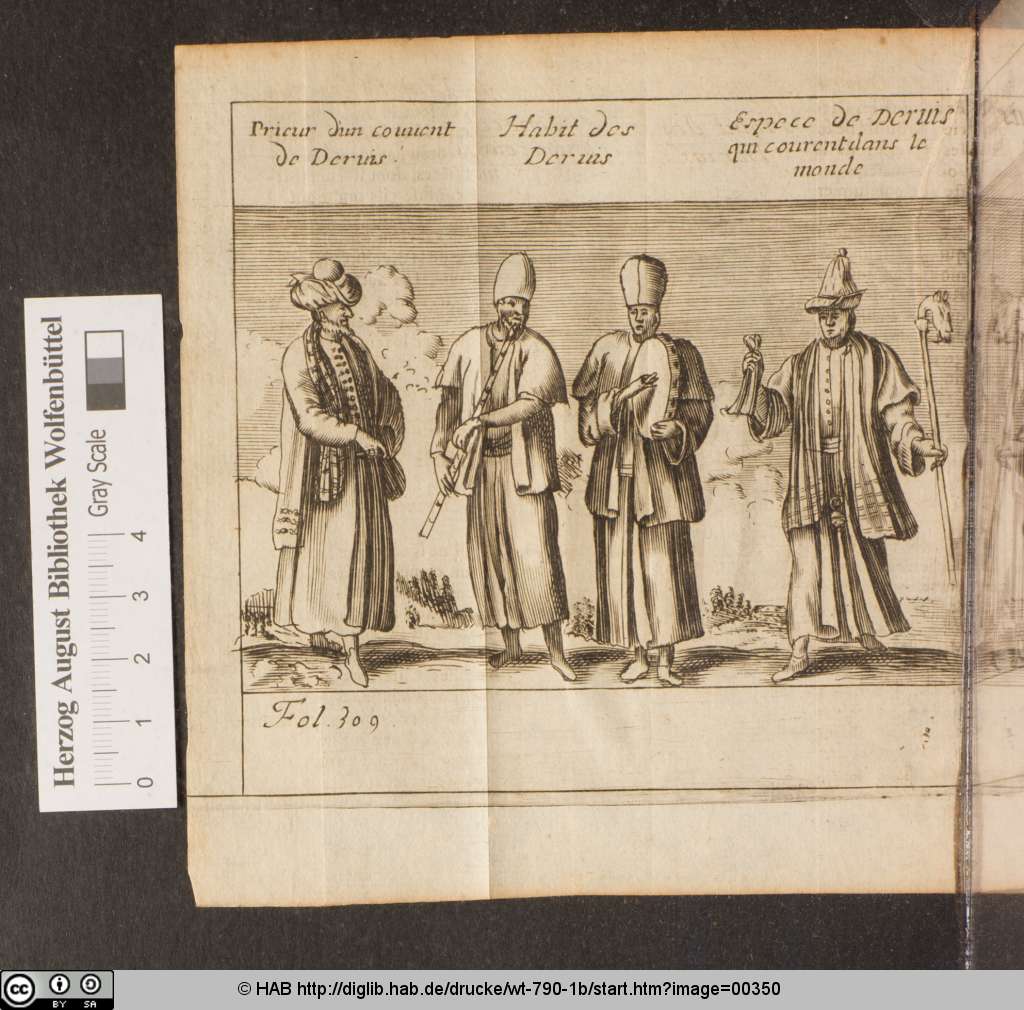 Prieur d'un couuent
de Deruis.
Habit des
Deruis
Espece de Deruis
qui courent dans le
monde
Fol. 309.
Herzog August Bibliothek Wolfenbüttel
Gray Scale
0 1 2 3 4
cc BY SA
© HAB http://diglib.hab.de/drucke/wt-790-1b/start.htm?image=00350